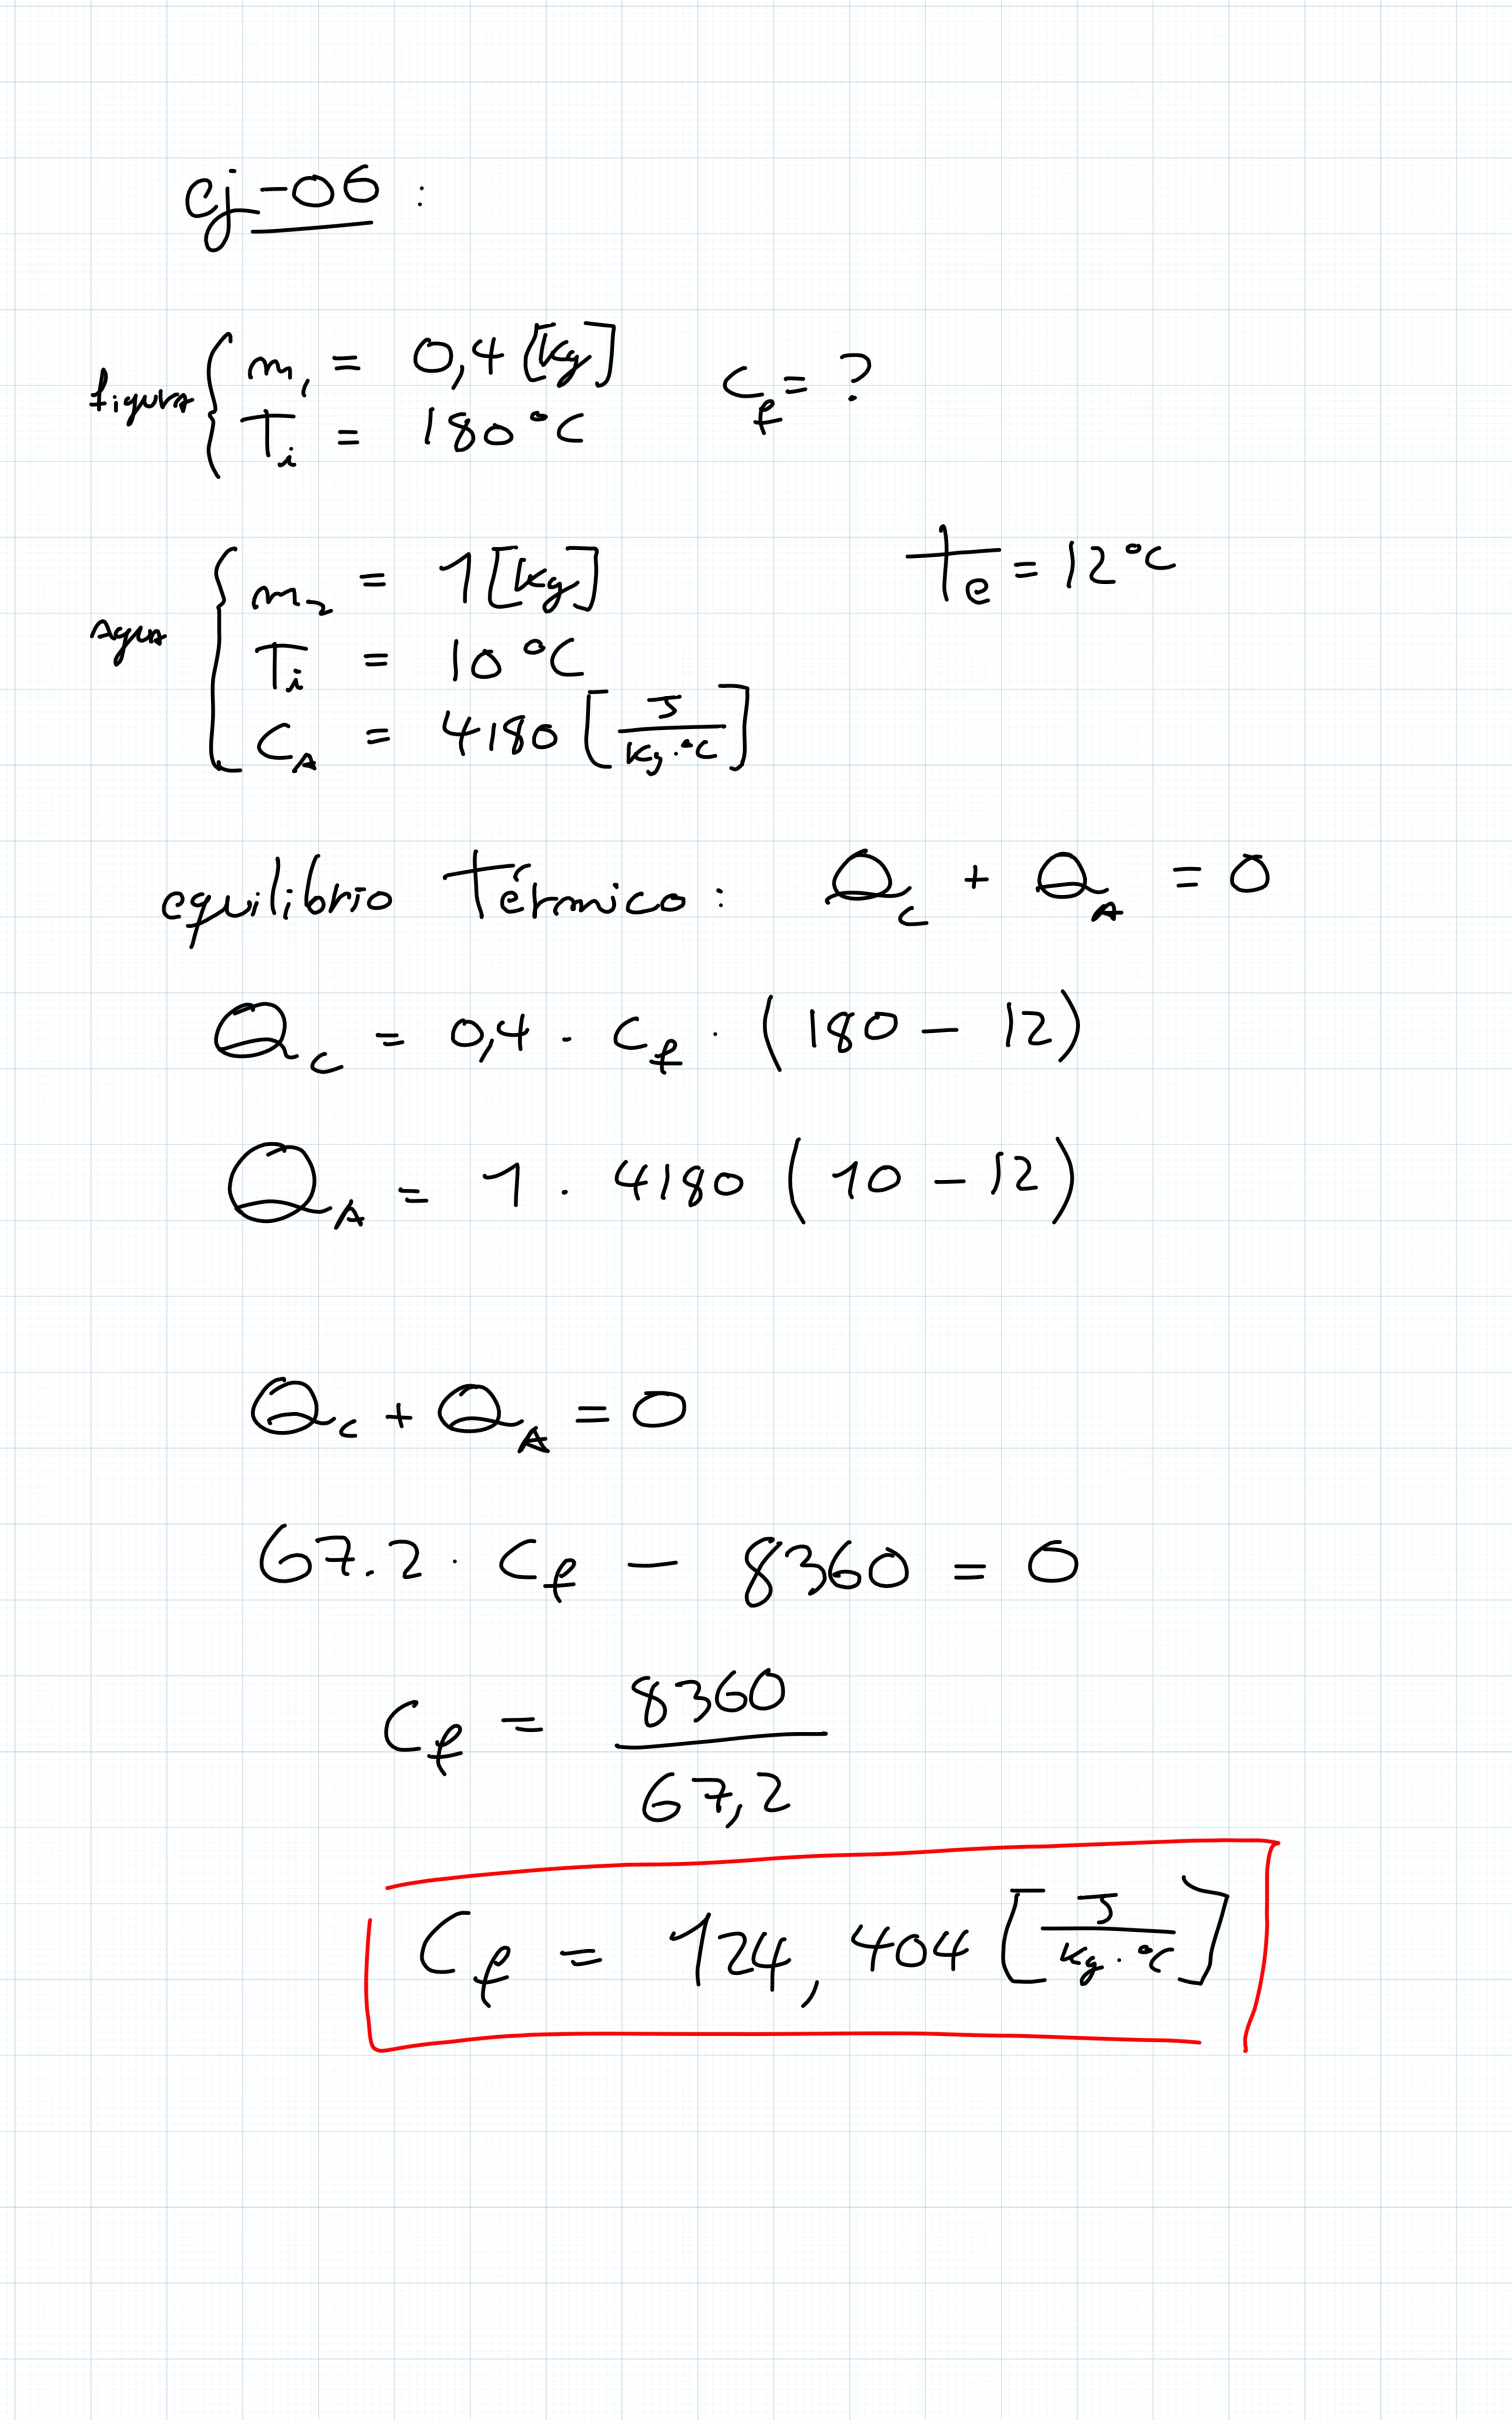 ej-06 :
figura { m₁ = 0,4 [kg] C_f = ?
T_i = 180 °C
agua { m₂ = 1 [kg] t_e = 12 °C
T_i = 10 °C
C_A = 4180 [J / kg · °C]
equilibrio térmico : Q_C + Q_A = 0
Q_C = 0,4 · C_f · (180 - 12)
Q_A = 1 · 4180 (10 - 12)
Q_C + Q_A = 0
67.2 · C_f - 8360 = 0
C_f = 8360 / 67,2
C_f = 124,404 [J / kg · °C]